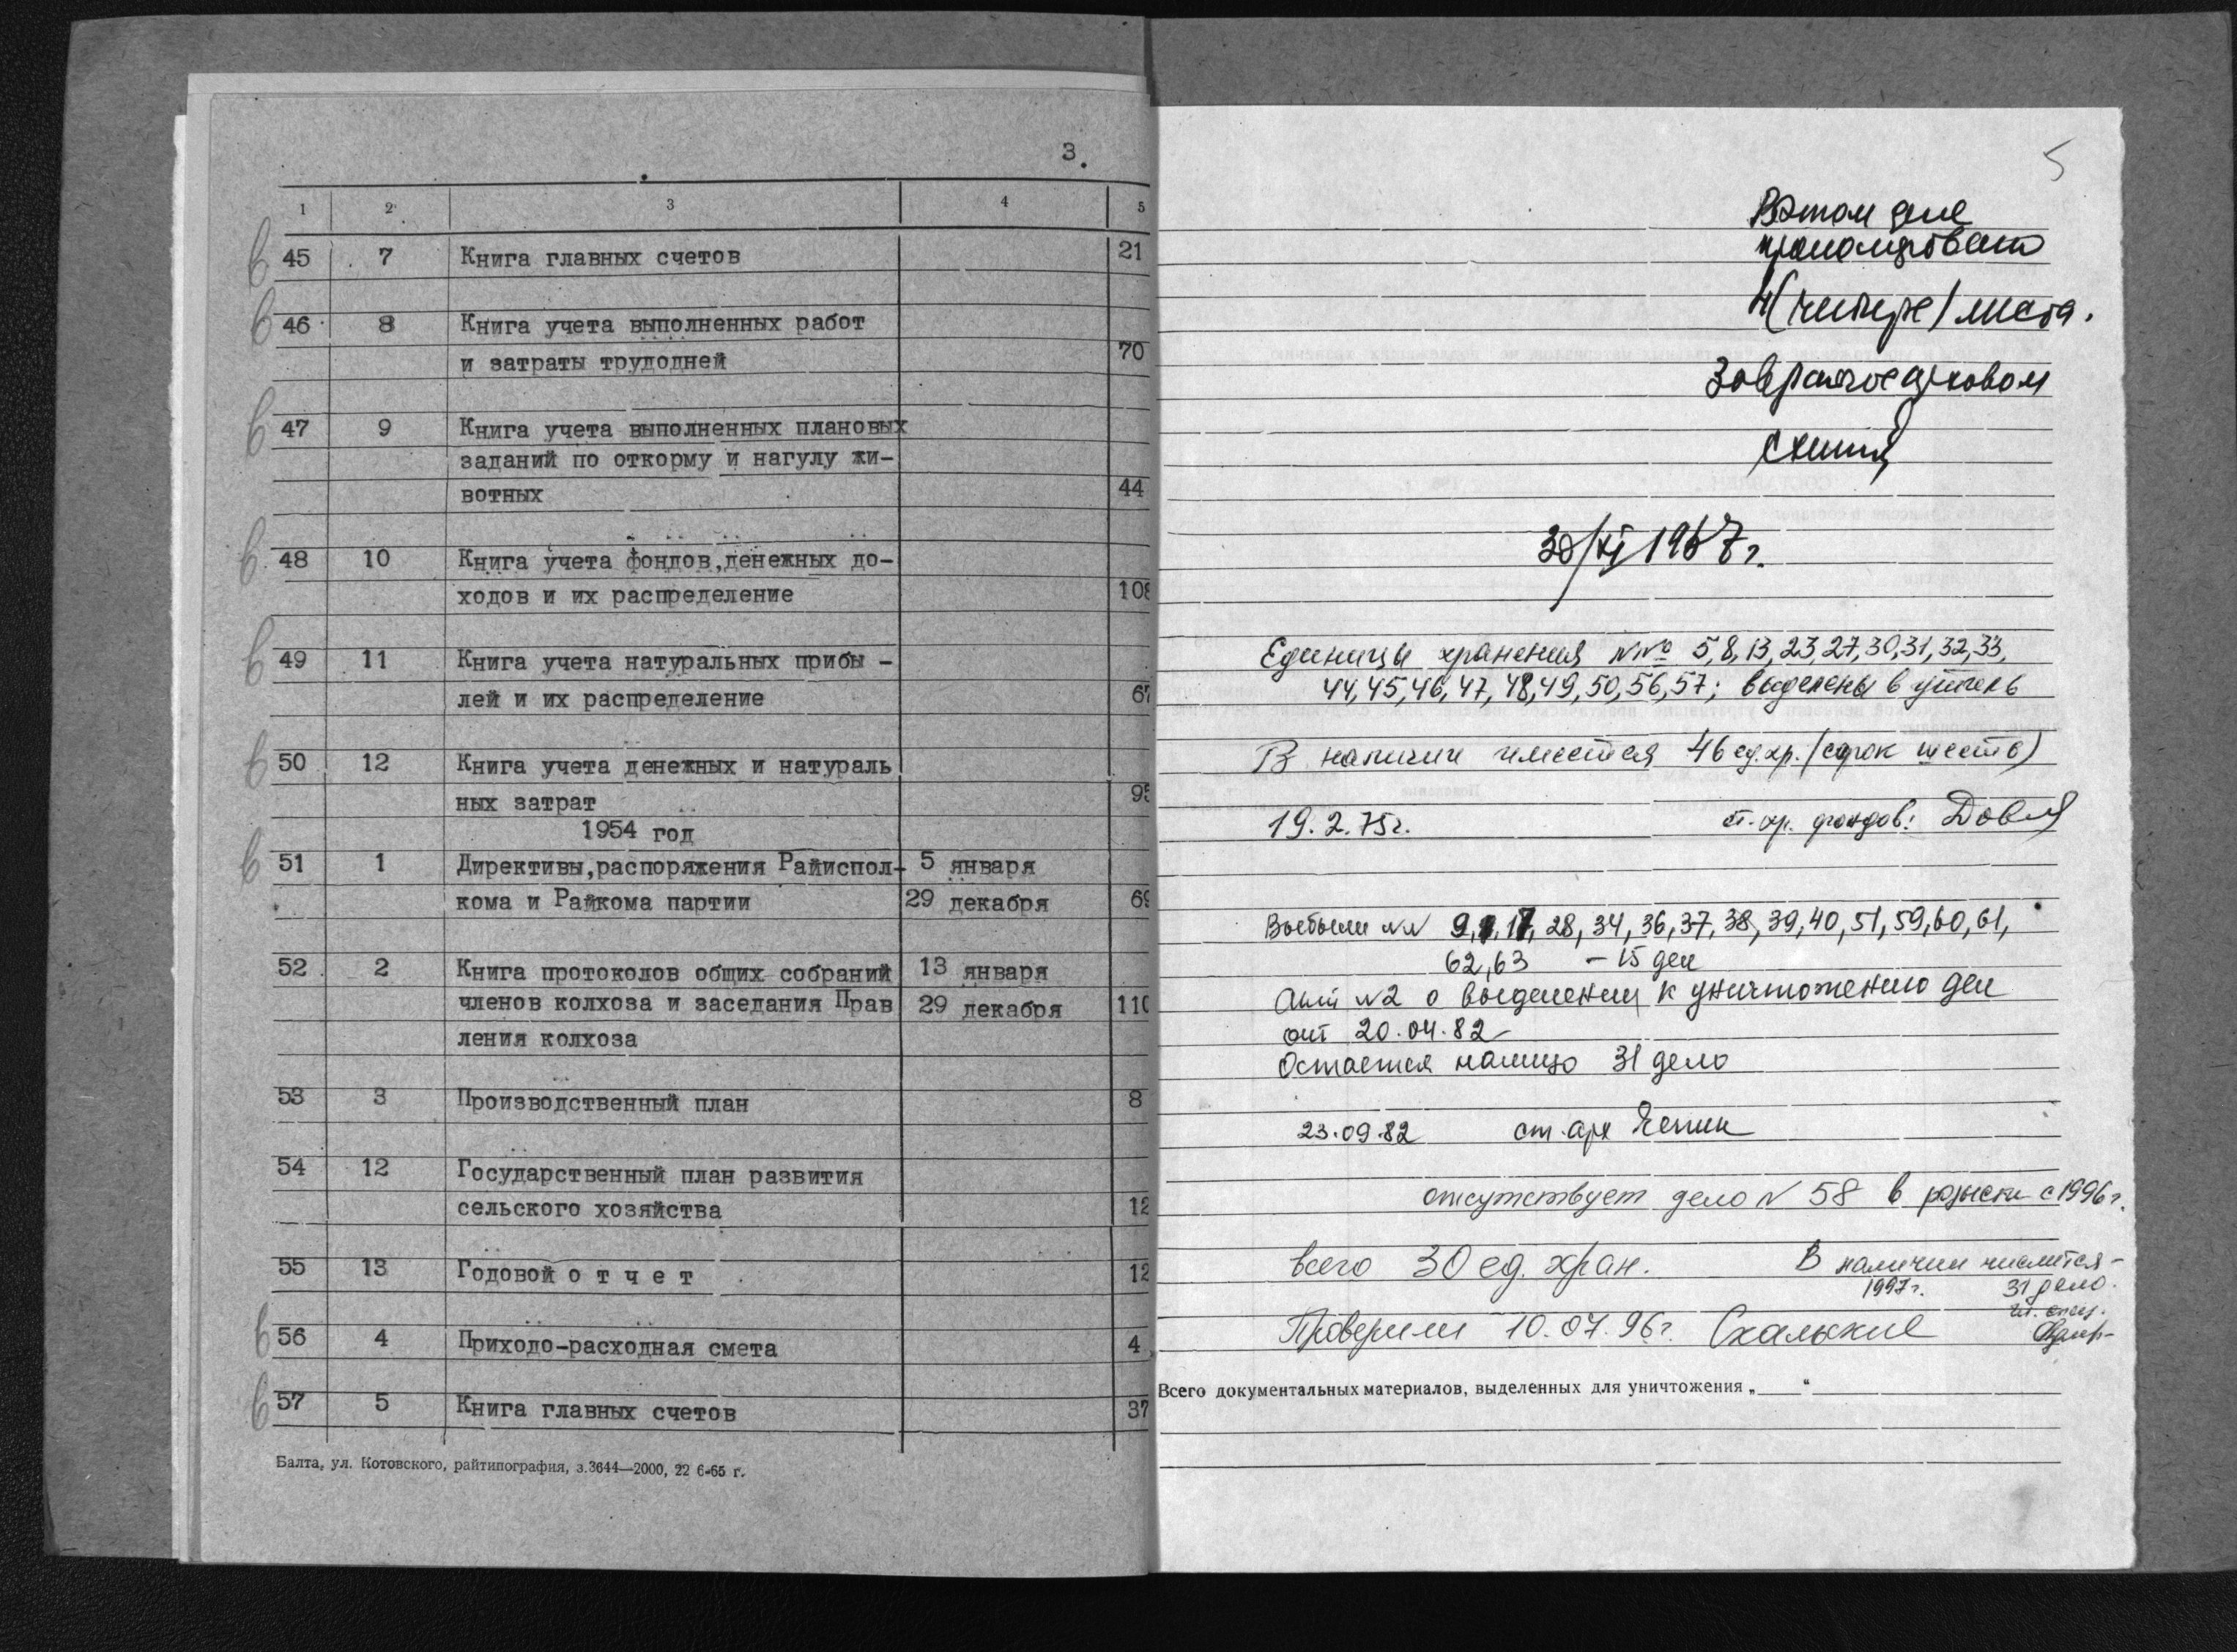 3.
1 2 3 4 5
45 7 Книга главных счетов 21
46 8 Книга учета выполненных работ
и затраты трудодней 70
47 9 Книга учета выполненных плановых
заданий по откорму и нагулу жи-
вотных 44
48 10 Книга учета фондов,денежных до-
ходов и их распределение 108
49 11 Книга учета натуральных прибы -
лей и их распределение 67
50 12 Книга учета денежных и натураль
ных затрат 95
1954 год
51 1 Директивы,распоряжения Райиспол- 5 января
кома и Райкома партии 29 декабря 69
52 2 Книга протоколов общих собраний 13 января
членов колхоза и заседания Прав 29 декабря 110
ления колхоза
53 3 Производственный план 8
54 12 Государственный план развития
сельского хозяйства 12
55 13 Годовой о т ч е т 12
56 4 Приходо-расходная смета 4
57 5 Книга главных счетов 37
Балта, ул. Котовского, райтипография, з.3644—2000, 22 6-65 г.
5
В этом деле
4 (четыре) листа.
30/XI 1967 г.
Единицы хранения №№ 5,8,13,23,27,30,31,32,33,
44,45,46,47,48,49,50,56,57; выделены в утиль
В наличии имеется 46 ед.хр. (сорок шесть)
19.2.75г. хр. фондов:
Выбыли №№ 9, 17, 28, 34, 36, 37, 38, 39, 40, 51, 59, 60, 61,
62, 63 – 15 дел
Акт №2 о выделении к уничтожению дел
от 20.04.82
Остается налицо 31 дело
23.09.82 ст. арх
отсутствует дело N 58 в розыске с 1996 г.
всего 30 ед. хран. В наличии числится –
1997г. 31 дело.
Проверили 10.07.96г.
Всего документальных материалов, выделенных для уничтожения „ “